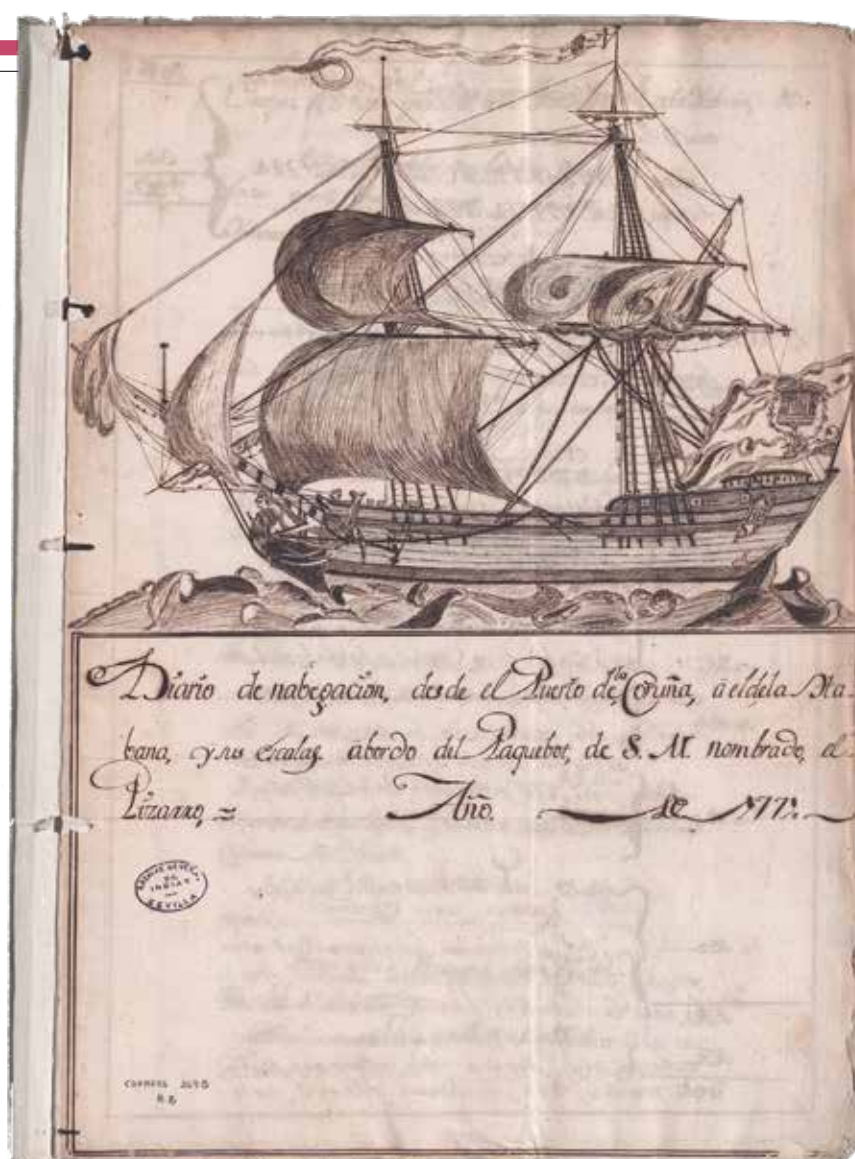 Diario de nabegacion, desde el Puerto de la Coruña, a el de la Ha-
bana, y sus escalas abordo del Paquebot, de S. M. nombrado, el
Pizarro, = Año. de 177
ARCHIVO GENERAL
DE
INDIAS
SEVILLA
CORREOS